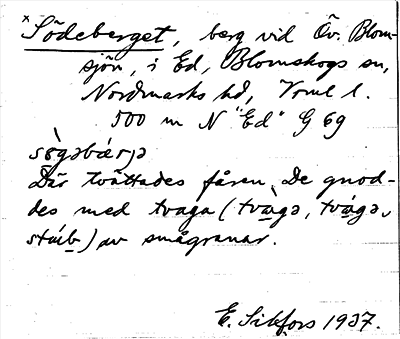 *Södeberget, berg vid Öv. Blom-
sjön, i Ed, Blomskogs sn,
Nordmarks hd, Vrml l.
500 m N "Ed" G 69
Där tvättades fåren. De gnod-
des med tvaga (tvàgə, tvágə,
stáib) av smågranar.
E. Sikfors 1937.